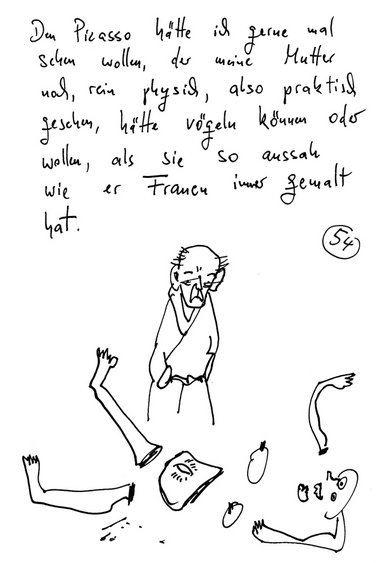 Den Picasso hätte ich gerne mal
sehen wollen, der meine Mutter
noch, rein physisch, also praktisch
gesehen, hätte vögeln können oder
wollen, als sie so aussah
wie er Frauen immer gemalt
hat.
54